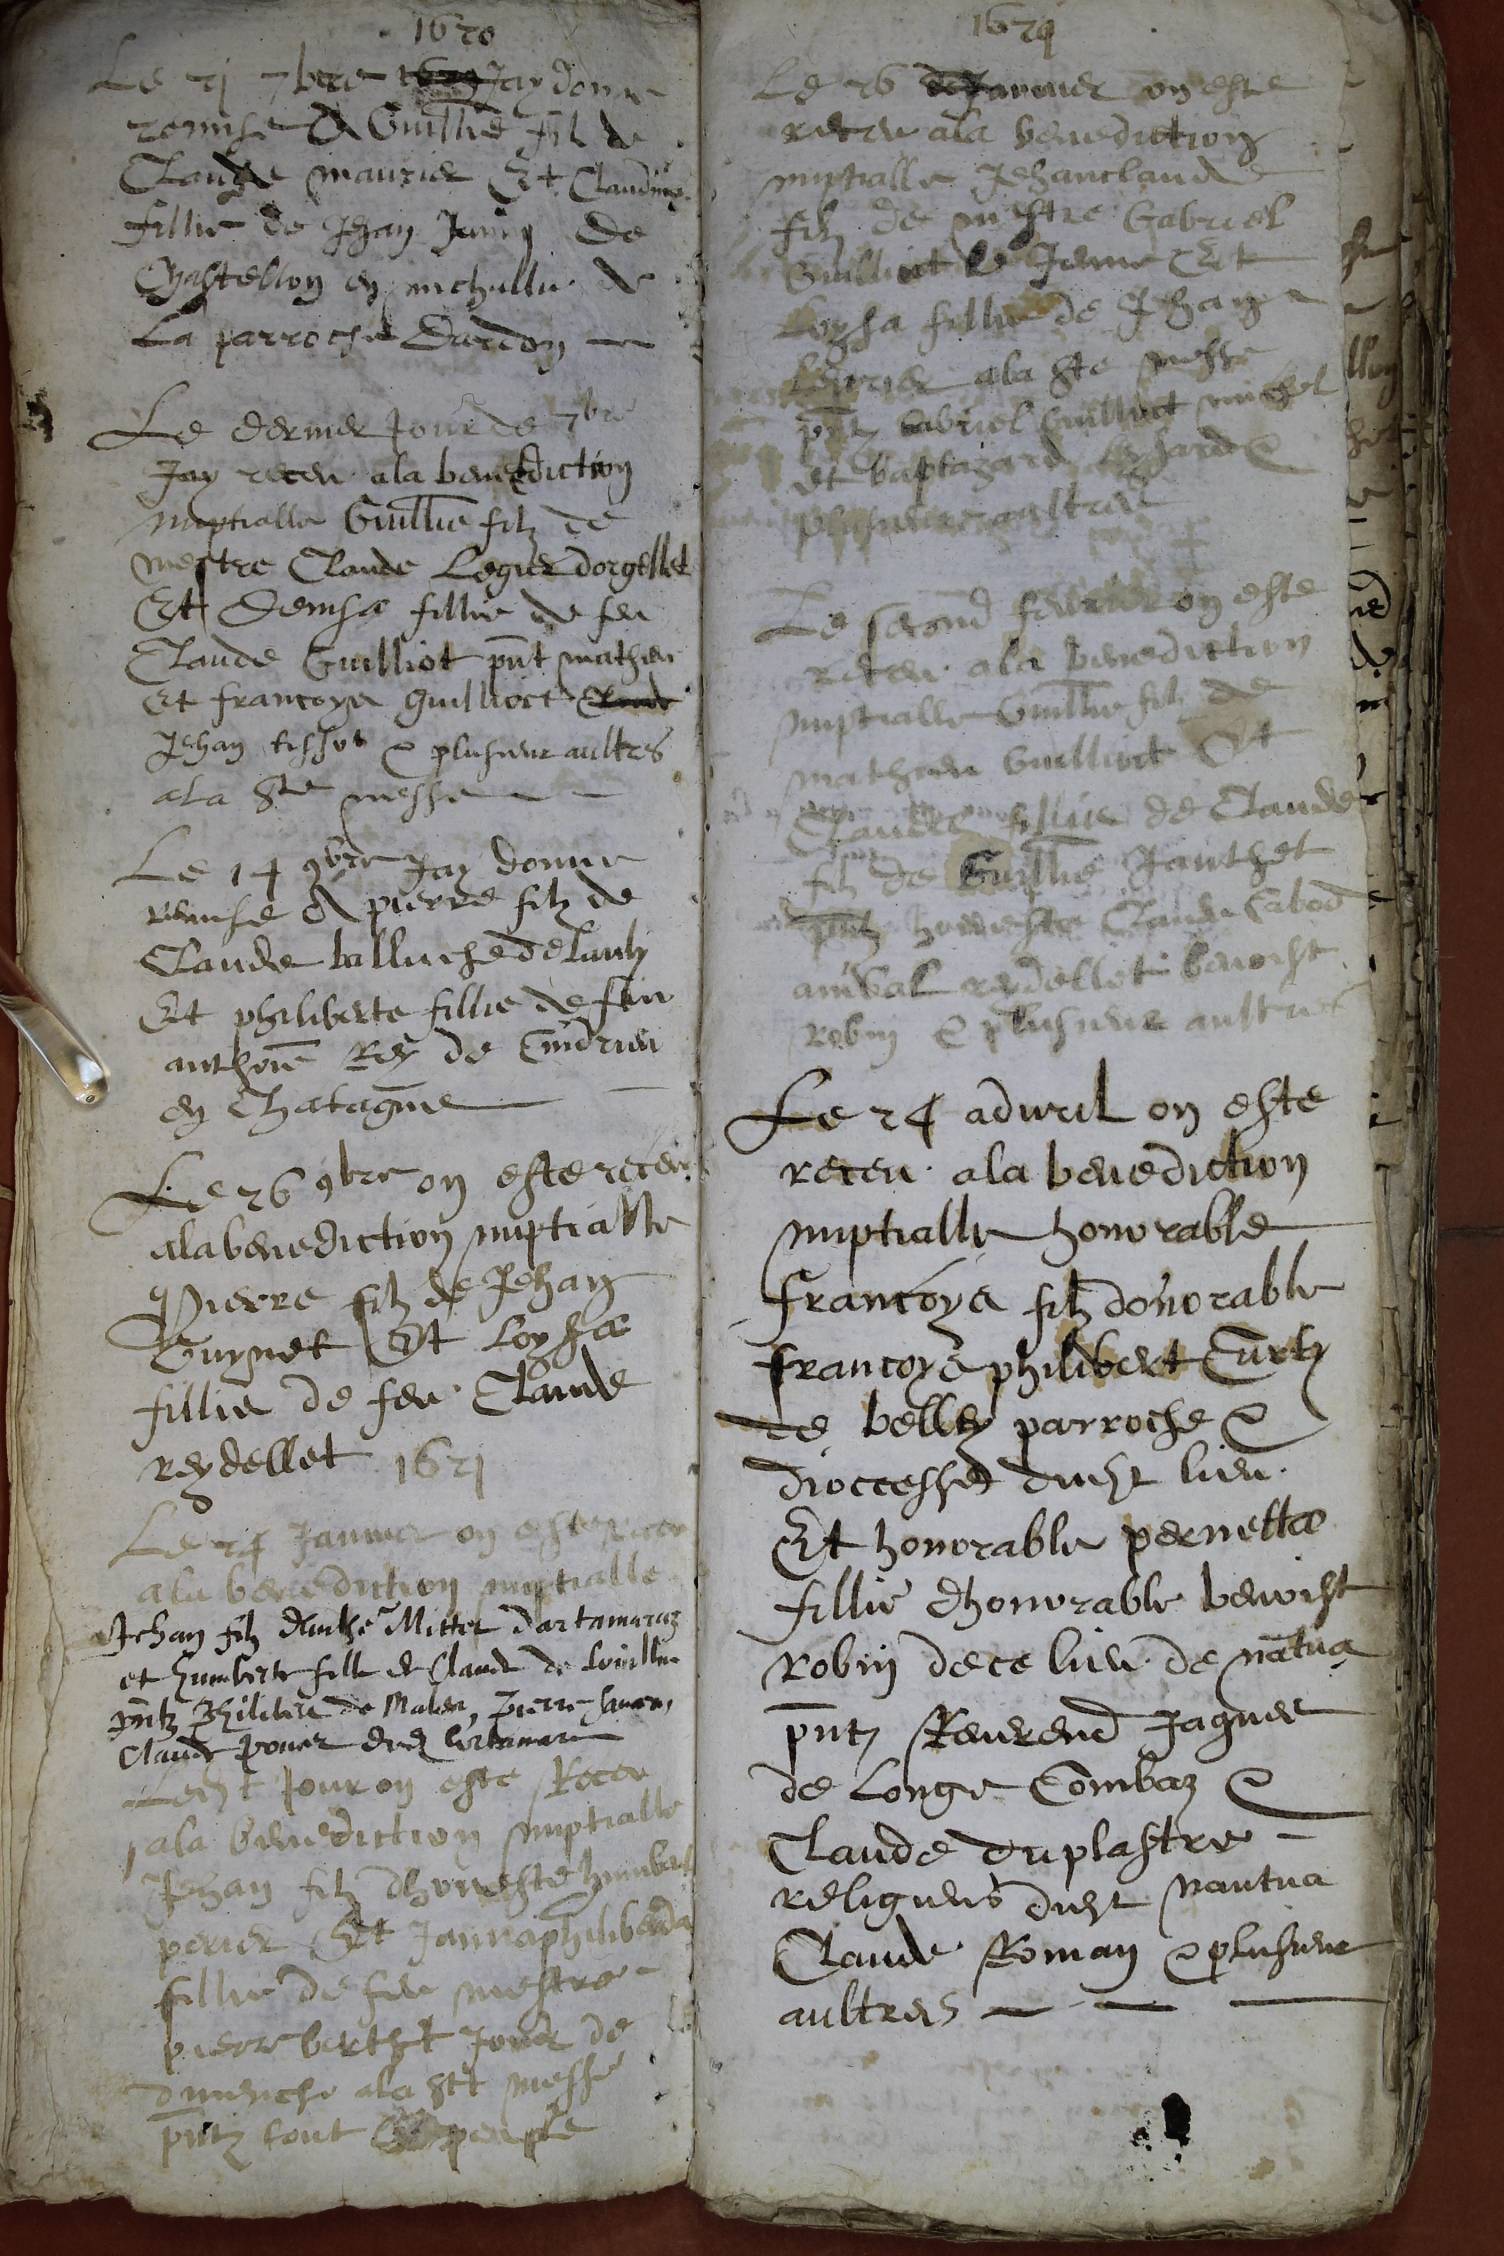 1620
Le 21 7bre Jay donne
remise A Guillme filz de
Claude maurier Et Claudine
fillie de Jehan Janin de
Chastellon en michallie de
La parroche Dardon
Le dernier Jour de 7bre
Jay receu ala benediction
nuptialle Guillme filz de
mestre Claude Legier dorgellet
Et Denisa fillie de feu
Claude Guilliot pnt mathieu
Et francoys guilliot
Jehan tissot & plusieur aultres
ala Ste messe
Le 14 9bre Jay donne
remise A pierre filz de
Claude balluche de
Et philiberte fillie de feu
anthoine Rey de Cuidrieu
en Chatagne
Le 26 9bre on este receu
ala benediction nuptialle
Pierre filz de Jehan
Guynet Et Loysa
fillie de feu Claude
reydellet 1621
Le 24 Janvier on este receu
ala benediction nuptialle
Jehan filz Mittet
et humberte fille de Claude de
pntz Philibert de Pierre
Claude
Ledit Jour on este Receu
ala benediction nuptialle
Jehan filz dhoneste humbert
perier Et Janna philiberda
fillie de feu mestre
pierre berthet Jour de
dimenche ala ste messe
pntz tout peuple
1621
Le 26 Janvier on este
receu ala benediction
nuptialle Jehanclaude
filz de mestre Gabriel
Guilliot le Jeune Et
Loysa fillie de Jehan
ala ste messe
pntz Gabriel Guilliot michel
et baltazard &
plusieurs aultres
Le second febvrier on este
receu ala benediction
nuptialle Guillme filz de
mathieu Guilliot Et
Claude fillie de Claude
filz de Guillme Janthet
pntz honneste Claude Cabod
anibal reydellet benoist
robin & plusieur aultres
Le 24 adwril on este
receu ala benediction
nuptialle honorable
francoys filz donorable
francoys philibert
de belley parroche &
dioccesse dudit lieu
Et honorable pernetta
fillie dhonorable benoist
Robin de ce lieu de nantua
pntz Reverend Jaques
de Longe Combaz &
Claude duplastre
religieus dudit Nantua
Claude Roman & plusieur
aultres